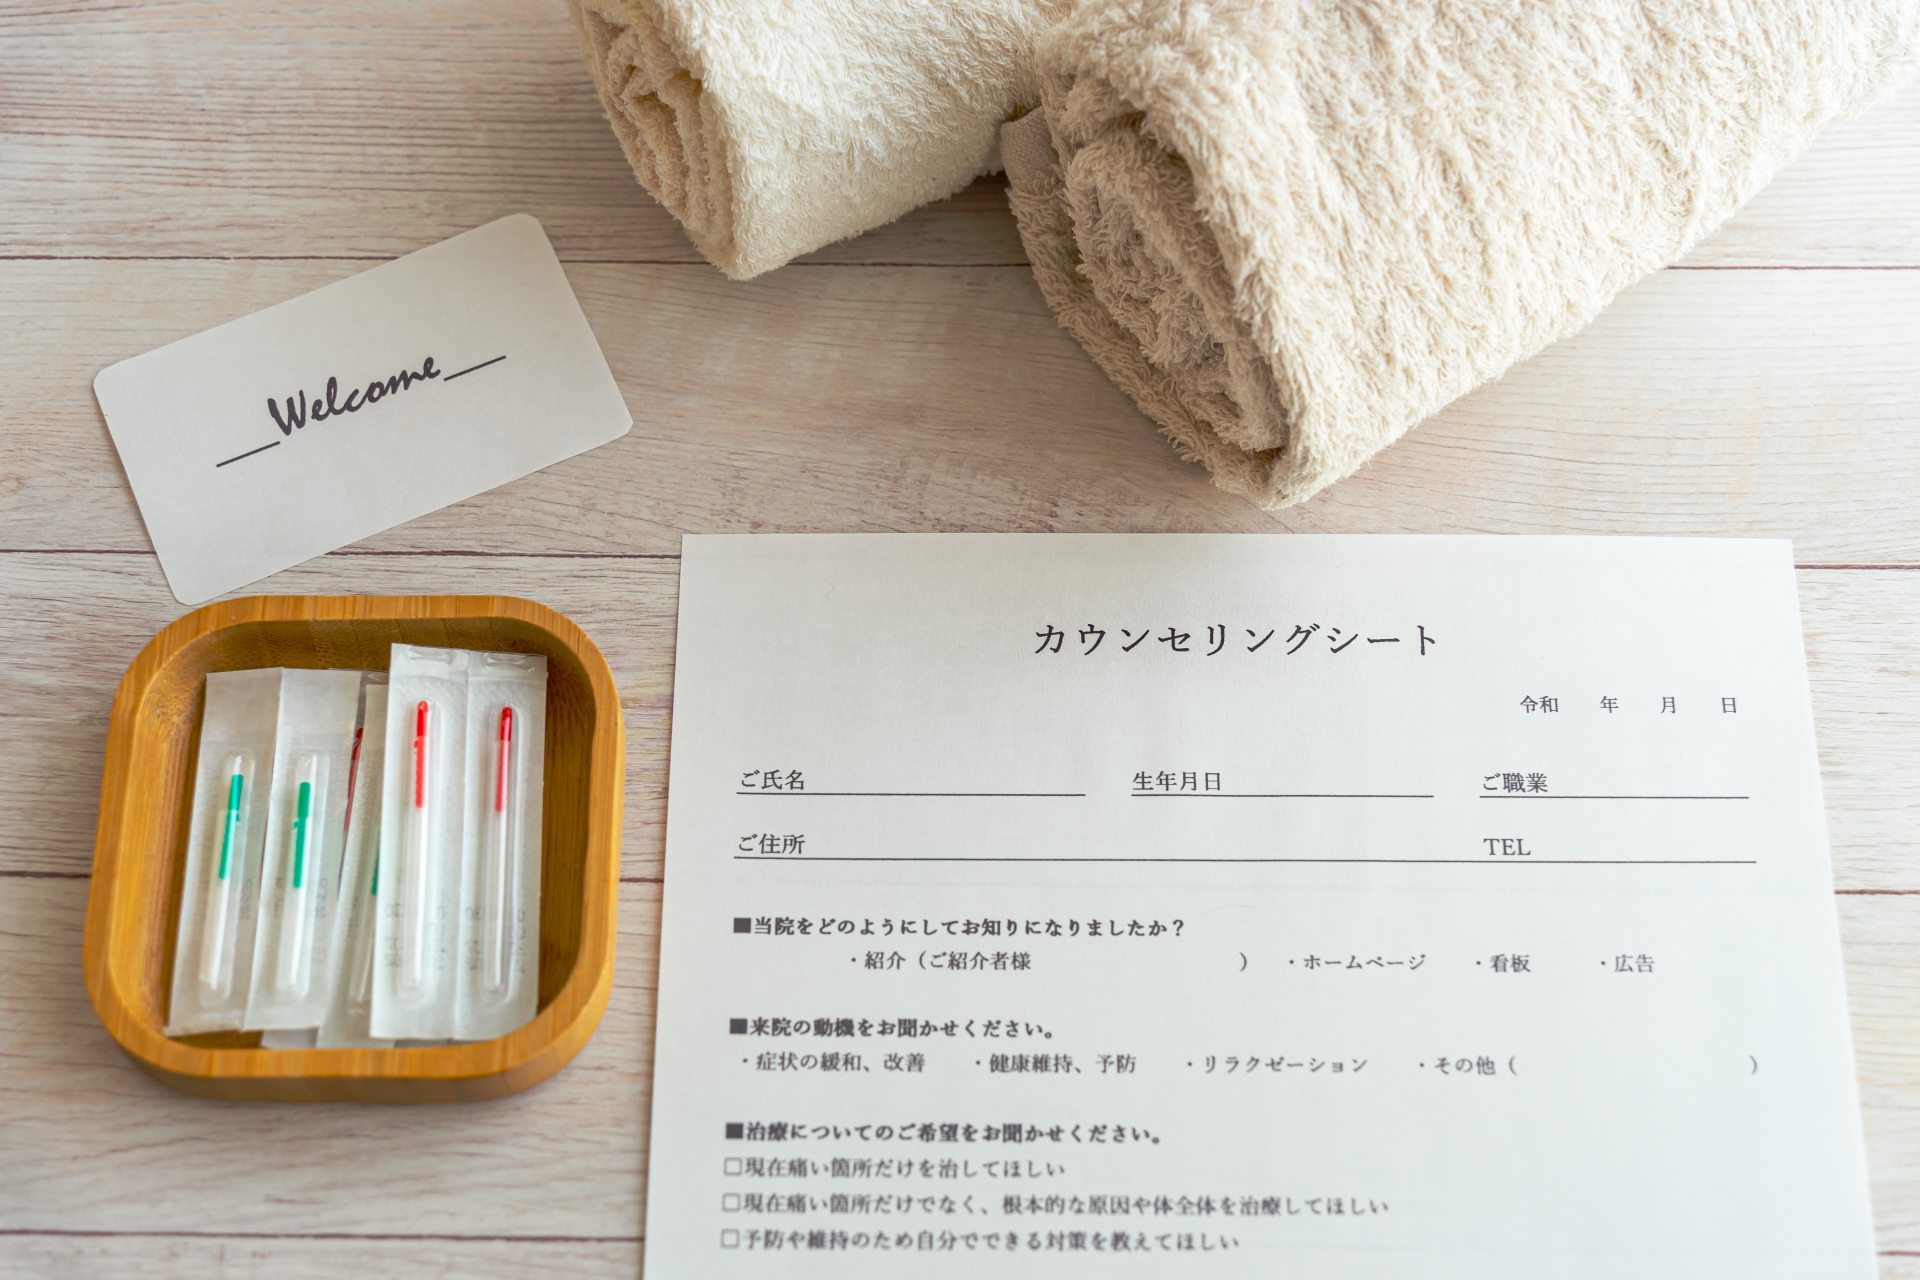 Welcome
カウンセリングシート
令和 年 月 日
ご氏名 生年月日 ご職業
ご住所 TEL
■当院をどのようにしてお知りになりましたか？
・紹介（ご紹介者様 ） ・ホームページ ・看板 ・広告
■来院の動機をお聞かせください。
・症状の緩和、改善 ・健康維持、予防 ・リラクゼーション ・その他（ ）
■治療についてのご希望をお聞かせください。
□現在痛い箇所だけを治してほしい
□現在痛い箇所だけでなく、根本的な原因や体全体を治療してほしい
□予防や維持のため自分でできる対策を教えてほしい